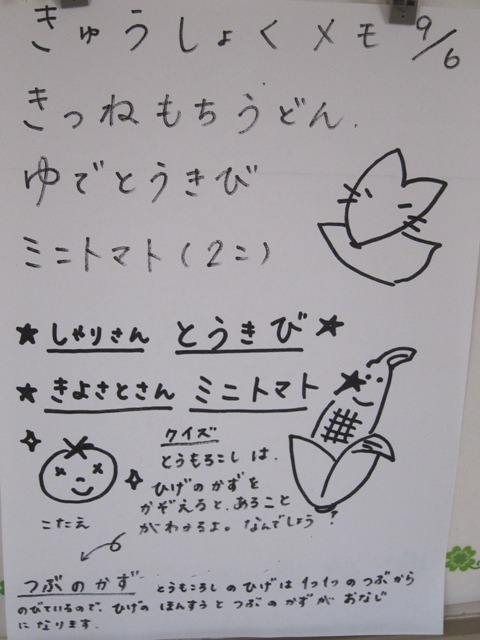 きゅうしょくメモ 9/6
きつねもちうどん.
ゆでとうきび
ミニトマト(2こ)
★しゃりさん とうきび★
★きよさとさん ミニトマト
クイズ
とうもろこしは、
ひげのかずを
かぞえると、あること
がわかるよ。なんでしょう?
こたえ
つぶのかず とうもころしのひげは1つ1つのつぶから
のびているので、ひげのほんすうとつぶのかずがおなじ
になります.